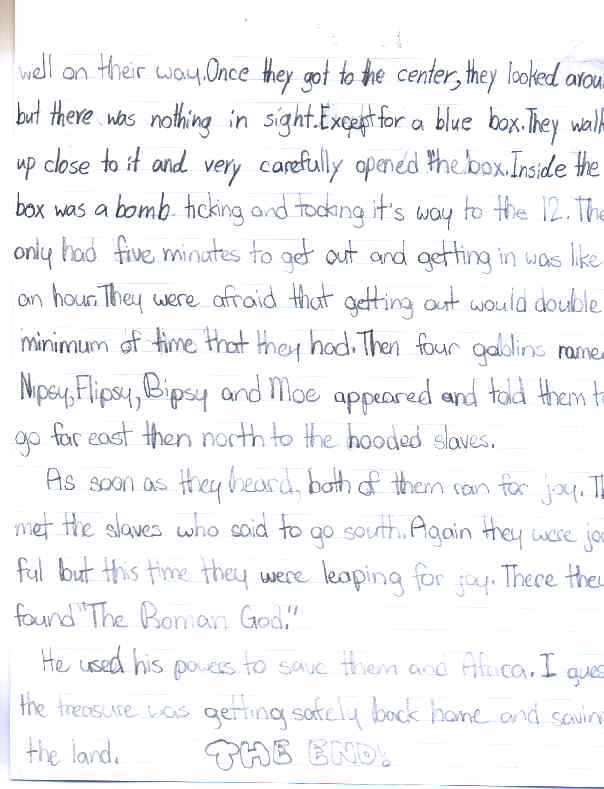 well on their way.Once they got to the center, they looked arou
but there was nothing in sight.Except for a blue box.They walk
up close to it and very carefully opened the box.Inside the
box was a bomb ticking and tocking it's way to the 12. The
only had five minutes to get out and getting in was like
an hour.They were afraid that getting out would double
minimum of time that they had.Then four goblins name
Nipsy,Flipsy,Bipsy and Moe appeared and told them t
go far east then north to the hooded slaves.
As soon as they heard, both of them ran for joy. Th
met the slaves who said to go south.Again they were jo
ful but this time they were leaping for joy. There they
found "The Roman God."
He used his powers to save them and Africa. I gues
the treasure was getting safely back home and savin
the land. THE END!